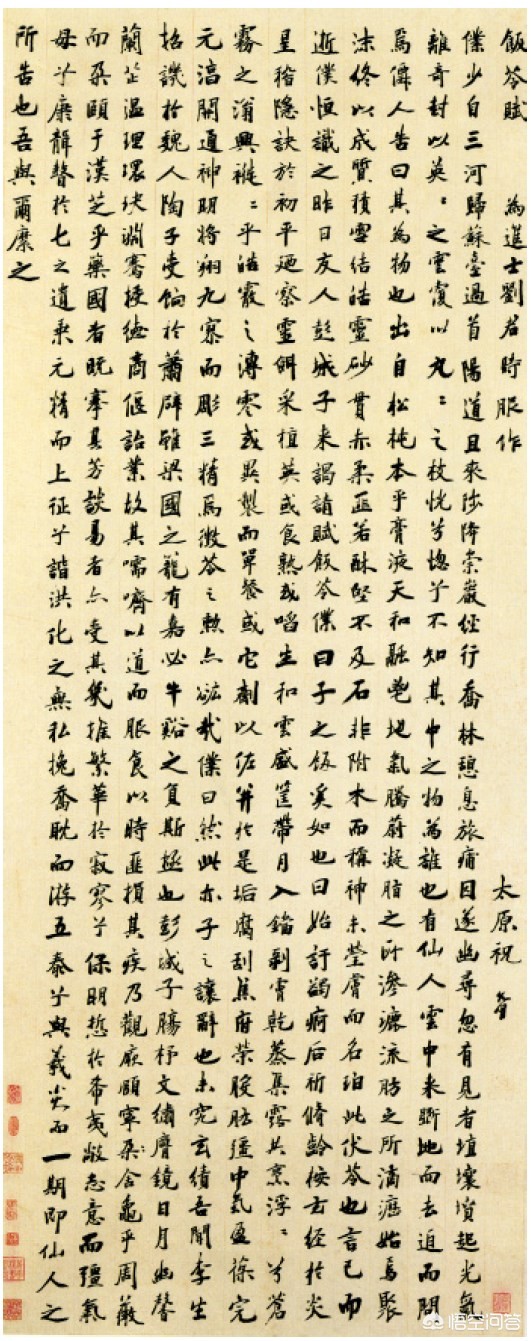 飯苓賦 為進士劉君時服作 太原祝允明
僕少自三河歸蘇臺過首陽道且來陟降崇巖經行喬林憩息旅痡因遂幽尋忽有見者埴壤墳起光氣
離奇封以英〻之雲覆以丸〻之枝恍兮惚兮不知其中之物為誰也有仙人雲中来斸地而去迫而問
焉僊人告曰其為物也出自松杔本乎膏液天和融鬯地氣騰蔚凝脂之所滲漉流肪之所滴瀝始焉聚
沫終以成質積雪結浩靈砂貫赤柔匪若酥堅不及石非附木而稱神未瑩膚而名珀此伏苓也言已而
逝僕恒識之昨日友人彭城子来謁請賦飯苓僕曰子之飯奚如也曰始訏蠲痾后祈脩齡按方經於炎
皇稽隱訣於初平廼察靈餌采植英或食熟或啗生和雲盛筐帶月入鐺剝膚乾蒸集露共烹浮〻兮蒼
霧之滃興褷〻乎浩霰之漙零或異製而單餐或它劑以佐并於是垢腐刮焦府榮腹肪彊中氣盈葆完
元滈開通神明將翔九寥而彫三精焉微苓之勲亦宏哉僕曰然此亦子之讓辭也未究玄績吾聞李生
招譏於魏人陶子受餉於蕭辟雖梁國之寵有嘉必牛谿之負斯極也彭城子腸杼文繡膺鏡日月幽馨
蘭芷温理環玦淵騫授德商偃詒業故其嚅嚌以道而服食以時匪損其疾乃觀厥頤寧舍龜乎周薇
而朵頤于漢芝乎藥國者既搴其芳談易者亦受其幾摧繁華於寂寥兮保明悊於希夷敝志意而彊氣
母兮康於七之遺乘元精而上征兮諧洪化之無私挽喬耽而游五泰兮與羲炎而一期即仙人之
所告也吾與爾糜之
悟空问答